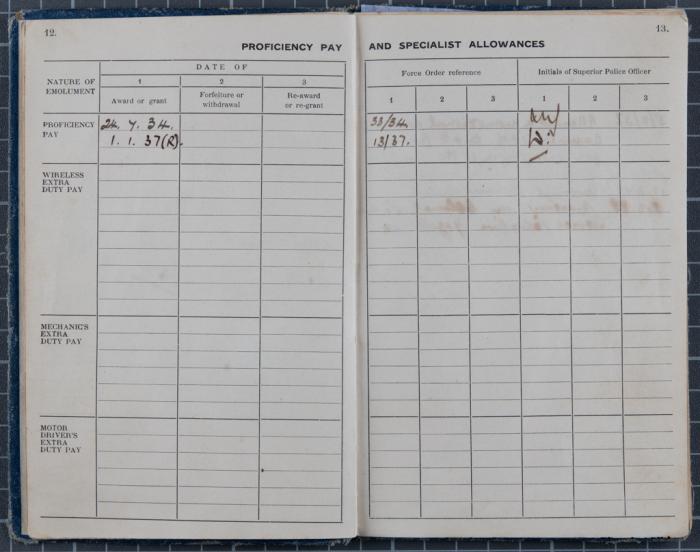 12.
PROFICIENCY PAY
DATE OF
NATURE OF
EMOLUMENT
1
Award or grant
2
Forfeiture or
withdrawal
3
Re-award
or re-grant
PROFICIENCY
PAY
24. 7. 34.
1. 1. 37 (R).
WIRELESS
EXTRA
DUTY PAY
MECHANIC'S
EXTRA
DUTY PAY
MOTOR
DRIVER'S
EXTRA
DUTY PAY
13.
AND SPECIALIST ALLOWANCES
Force Order reference
Initials of Superior Police Officer
1
2
3
1
2
3
33/34.
13/37.